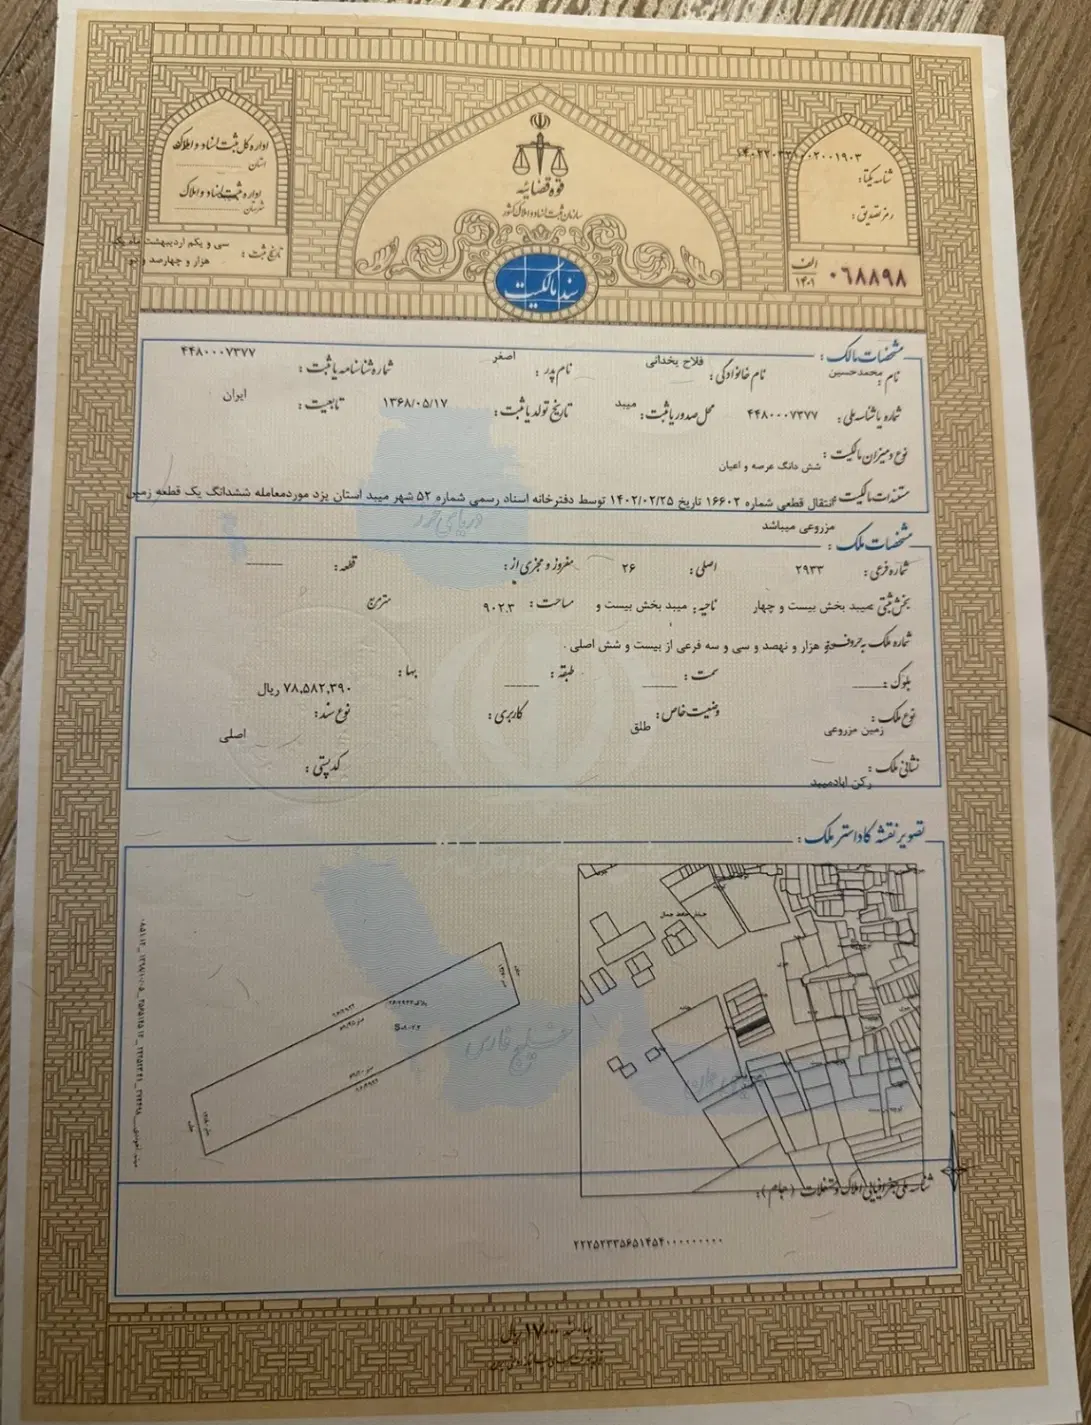 اداره کل ثبت اسناد و املاک
استان
اداره ثبت اسناد و املاک
شهرستان
تاریخ ثبت : سی و یکم اردیبهشت ماه یک
هزار و چهارصد و دو
قوه قضائیه
سازمان ثبت اسناد و املاک کشور
سند مالکیت
شناسه یکتا:
رمز تصدیق:
الف
۱۴۰۱
۰۶۸۸۹۸
مشخصات مالک :
نام : محمدحسین
نام خانوادگی : فلاح یخدانی
نام پدر : اصغر
شماره شناسنامه یا ثبت : ۴۴۸۰۰۰۷۳۷۷
شماره یا شناسه ملی : ۴۴۸۰۰۰۷۳۷۷
محل صدور یا ثبت : میبد
تاریخ تولد یا ثبت : ۱۳۶۸/۰۵/۱۷
تابعیت : ایران
نوع و میزان مالکیت : شش دانگ عرصه و اعیان
مستندات مالکیت : انتقال قطعی شماره ۱۶۶۰۲ تاریخ ۱۴۰۲/۰۲/۲۵ توسط دفترخانه اسناد رسمی شماره ۵۲ شهر میبد استان یزد موردمعامله ششدانگ یک قطعه زمین
مزروعی میباشد
مشخصات ملک :
شماره فرعی : ۲۹۳۳
اصلی : ۲۶
مفروز و مجزی از :
قطعه :
بخش ثبتی : میبد بخش بیست و چهار
ناحیه : میبد بخش بیست و
مساحت : ۹۰۲.۳
مترمربع
شماره ملک به حروف : دو هزار و نهصد و سی و سه فرعی از بیست و شش اصلی .
بلوک :
سمت :
طبقه :
بها : ۷۸,۵۸۲,۳۹۰ ریال
نوع ملک : زمین مزروعی
وضعیت خاص : طلق
کاربری :
نوع سند : اصلی
نشانی ملک : رکن ابادمیبد
کد پستی :
تصویر نقشه کاداستر ملک :
دریای خزر
خلیج فارس
شناسه ملی جغرافیایی املاک و مستغلات (جام):
۲۲۲۵۲۳۳۵۶۵۱۴۵۴۰۰۰۰۰۰۰۰۰۰